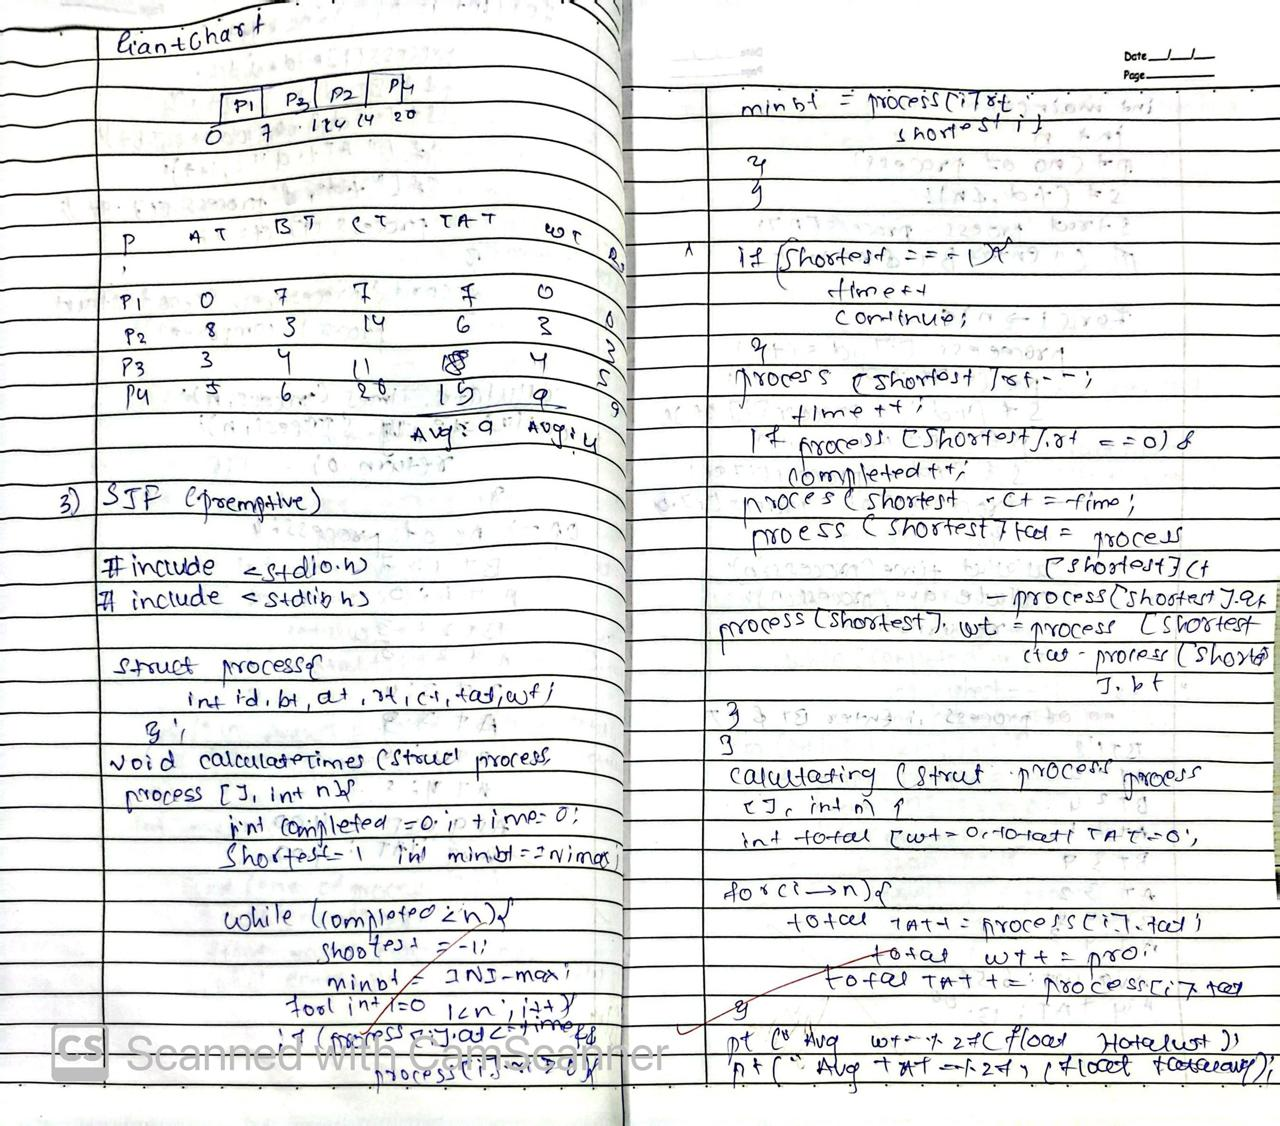 Giant Chart
P1 P3 P2 P4
0 7 14 20
P AT BT CT TAT WT
P1 0 7 7 7 0
P2 8 3 14 6 3
P3 3 4 11 8 4
P4 5 6 20 15 9
Avg: 9 Avg: 4
3) SJF (premptive)
# include <stdio.h>
# include <stdlib h>
struct process{
int id, bt, at, rt, ct, tat, wt;
};
void calculateTimes (struct process
process [], int n){
int completed = 0; time = 0;
Shortest = 1 int minbt = INimax;
while (completed < n){
shootest = -1;
minbt = INI-max;
for( int i=0 i<n; i++)
if (process[i].at <= time &&
process[i]
CS Scanned with CamScanner
Date __/__/__
Page
minbt = process[i] rt
shortest i;
}
}
if (Shortest == -1){
time++
continue;
}
process [shortest] rt--;
time++;
If process [shortest].rt == 0) {
completed++;
proces (shortest . ct = time;
proess (shortest] tat = process
[shortest] ct
- process[shortest].at
process [shortest]. wt = process [shortest
- process (shortest
]. bt
}
}
calcultating (strut process process
[], int n) {
int total [wt = 0, total TAT = 0;
for (i → n){
total TAT + = process[i].tat;
total wt + = pro;
total TAT + = process[i].tat
}
pt (" Avg wt = % 2f (float
pt (" Avg TAT = % 2f, (float